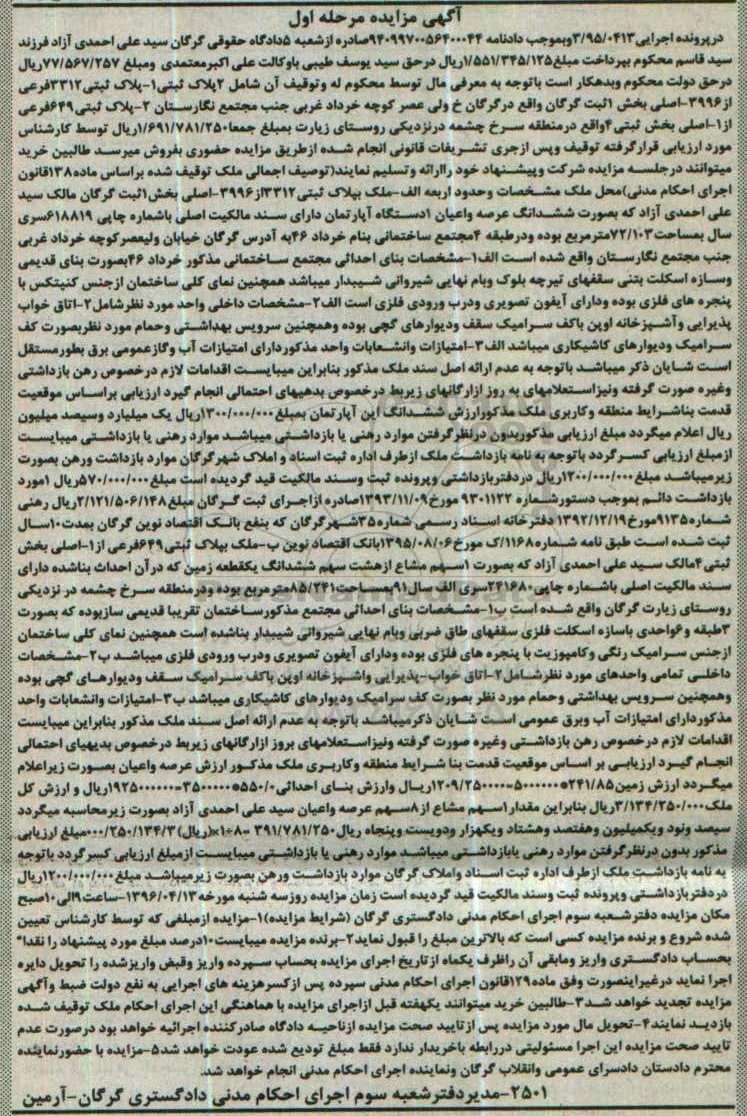 آگهی مزایده مرحله اول
درپرونده اجرایی۳/۹۵/۰۴۱۳وبموجب دادنامه ۹۴۰۹۹۷۰۰۵۶۴۰۰۰۴۴صادره ازشعبه ۵دادگاه حقوقی گرگان سید علی احمدی آزاد فرزند
سید قاسم محکوم بپرداخت مبلغ۱/۵۵۱/۳۴۵/۱۲۵ریال درحق سید یوسف طیبی باوکالت علی اکبرمعتمدی ومبلغ ۷۷/۵۶۷/۲۵۷ریال
درحق دولت محکوم وبدهکار است باتوجه به معرفی مال توسط محکوم له وتوقیف آن شامل ۲پلاک ثبتی۱-پلاک ثبتی۳۳۱۲فرعی
از۳۹۹۶-اصلی بخش ۱ثبت گرگان واقع درگرگان خ ولی عصر کوچه خرداد غربی جنب مجتمع نگارستان ۲-پلاک ثبتی۶۴۹فرعی
از۱-اصلی بخش ثبتی۴واقع درمنطقه سرخ چشمه درنزدیکی روستای زیارت بمبلغ جمعا۱/۶۹۱/۷۸۱/۲۵۰ریال توسط کارشناس
مورد ارزیابی قرارگرفته توقیف وپس ازجری تشریفات قانونی انجام شده ازطریق مزایده حضوری بفروش میرسد طالبین خرید
میتوانند درجلسه مزایده شرکت وپیشنهاد خود راارائه وتسلیم نمایند(توصیف اجمالی ملک توقیف شده براساس ماده۱۳۸قانون
اجرای احکام مدنی)محل ملک مشخصات وحدود اربعه الف-ملک بپلاک ثبتی۳۳۱۲از۳۹۹۶-اصلی بخش۱ثبت گرگان مالک سید
علی احمدی آزاد که بصورت ششدانگ عرصه واعیان ۱دستگاه آپارتمان دارای سند مالکیت اصلی باشماره چاپی ۶۱۸۸۱۹سری
سال بمساحت۷۲/۱۰۳مترمربع بوده ودرطبقه ۴مجتمع ساختمانی بنام خرداد ۴۶به آدرس گرگان خیابان ولیعصرکوچه خرداد غربی
جنب مجتمع نگارستان واقع شده است الف۱-مشخصات بنای احداثی مجتمع ساختمانی مذکور خرداد ۴۶بصورت بنای قدیمی
وسازه اسکلت بتنی سقفهای تیرچه بلوک وبام نهایی شیروانی شیبدار میباشد همچنین نمای کلی ساختمان ازجنس کنیتکس با
پنجره های فلزی بوده ودارای آیفون تصویری ودرب ورودی فلزی است الف۲-مشخصات داخلی واحد مورد نظرشامل۲-اتاق خواب
پذیرایی وآشپزخانه اوپن باکف سرامیک سقف ودیوارهای گچی بوده وهمچنین سرویس بهداشتی وحمام مورد نظربصورت کف
سرامیک ودیوارهای کاشیکاری میباشد الف۳-امتیازات وانشعابات واحد مذکوردارای امتیازات آب وگازعمومی برق بطورمستقل
است شایان ذکر میباشد باتوجه به عدم ارائه اصل سند ملک مذکور بنابراین میبایست اقدامات لازم درخصوص رهن بازداشتی
وغیره صورت گرفته ونیزاستعلامهای به روز ازارگانهای زیربط درخصوص بدهیهای احتمالی انجام گیرد ارزیابی براساس موقعیت
قدمت بناشرایط منطقه وکاربری ملک مذکورارزش ششدانگ این آپارتمان بمبلغ۱۳۰۰/۰۰۰/۰۰۰ریال یک میلیارد وسیصد میلیون
ریال اعلام میگردد مبلغ ارزیابی مذکوربدون درنظرگرفتن موارد رهنی یا بازداشتی میباشد موارد رهنی یا بازداشتی میبایست
ازمبلغ ارزیابی کسرگردد باتوجه به نامه بازداشت ملک ازطرف اداره ثبت اسناد و املاک شهرگرگان موارد بازداشت ورهن بصورت
زیرمیباشد مبلغ۱۲۰۰/۰۰۰/۰۰۰ریال دردفتربازداشتی وپرونده ثبت وسند مالکیت قید گردیده است مبلغ۵۷۰/۰۰۰/۰۰۰ریال ۱مورد
بازداشت دائم بموجب دستورشماره ۹۳۰۱۱۲۲ مورخ۱۳۹۳/۱۱/۰۹صادره ازاجرای ثبت گرگان مبلغ۲/۱۲۱/۵۰۶/۱۴۸ریال رهنی
شماره۹۱۳۵مورخ۱۳۹۲/۱۲/۱۹دفترخانه اسناد رسمی شماره۳۵شهرگرگان که بنفع بانک اقتصاد نوین گرگان بمدت۱۰سال
ثبت شده است طبق نامه شماره۱۱۶۸/ک مورخ۱۳۹۵/۰۸/۰۶بانک اقتصاد نوین ب-ملک بپلاک ثبتی۶۴۹فرعی از۱-اصلی بخش
ثبتی۴مالک سید علی احمدی آزاد که بصورت ۱سهم مشاع ازهشت سهم ششدانگ یکقطعه زمین که درآن احداث بناشده دارای
سند مالکیت اصلی باشماره چاپی۲۴۱۶۸۰سری الف سال۹۱بمساحت۸۵/۲۴۱مترمربع بوده ودرمنطقه سرخ چشمه در نزدیکی
روستای زیارت گرگان واقع شده است ب۱-مشخصات بنای احداثی مجتمع مذکورساختمان تقریبا قدیمی سازبوده که بصورت
۳طبقه و۶واحدی باسازه اسکلت فلزی سقفهای طاق ضربی وبام نهایی شیروانی شیبدار بناشده است همچنین نمای کلی ساختمان
ازجنس سرامیک رنگی وکامپوزیت با پنجره های فلزی بوده ودارای آیفون تصویری ودرب ورودی فلزی میباشد ب۲-مشخصات
داخلی تمامی واحدهای مورد نظرشامل۲-اتاق خواب-پذیرایی واشپزخانه اوپن باکف سرامیک سقف ودیوارهای گچی بوده
وهمچنین سرویس بهداشتی وحمام مورد نظر بصورت کف سرامیک ودیوارهای کاشیکاری میباشد ب۳-امتیازات وانشعابات واحد
مذکوردارای امتیازات آب وبرق عمومی است شایان ذکرمیباشد باتوجه به عدم ارائه اصل سند ملک مذکور بنابراین میبایست
اقدامات لازم درخصوص رهن بازداشتی وغیره صورت گرفته ونیزاستعلامهای بروز ازارگانهای زیربط درخصوص بدیهیای احتمالی
انجام گیرد ارزیابی بر اساس موقعیت قدمت بنا شرایط منطقه وکاربری ملک مذکور ارزش عرصه واعیان بصورت زیراعلام
میگردد ارزش زمین۲۴۱/۸۵*۵۰۰۰۰۰۰=۱۲۰۹/۲۵۰۰۰۰ریال وارزش بنای احداثی۵۵۰/۰*۳۵۰۰۰۰۰=۱۹۲۵۰۰۰۰۰۰ریال و ارزش کل
ملک۳/۱۳۴/۲۵۰/۰۰۰ریال بنابراین مقدار۱سهم مشاع از۸سهم عرصه واعیان سید علی احمدی آزاد بصورت زیرمحاسبه میگردد
سیصد ونود ویکمیلیون وهفتصد وهشتاد ویکهزار ودویست وپنجاه ریال۳۹۱/۷۸۱/۲۵۰ =۸÷۱×(ریال)۰۰۰/۲۵۰/۱۳۴/۳مبلغ ارزیابی
مذکور بدون درنظرگرفتن موارد رهنی یابازداشتی میباشد موارد رهنی یا بازداشتی میبایست ازمبلغ ارزیابی کسرگردد باتوجه
به نامه بازداشت ملک ازطرف اداره ثبت اسناد واملاک گرگان موارد بازداشت ورهن بصورت زیرمیباشد مبلغ۱۲۰۰/۰۰۰/۰۰۰ریال
دردفتربازداشتی وپرونده ثبت وسند مالکیت قید گردیده است زمان مزایده روزسه شنبه مورخه۱۳۹۶/۰۴/۱۳-ساعت۹الی۱۰صبح
مکان مزایده دفترشعبه سوم اجرای احکام مدنی دادگستری گرگان (شرایط مزایده)۱-مزایده ازمبلغی که توسط کارشناس تعیین
شده شروع و برنده مزایده کسی است که بالاترین مبلغ را قبول نماید۲-برنده مزایده میبایست۱۰درصد مبلغ مورد پیشنهاد را نقدا"
بحساب دادگستری واریز ومابقی آن راظرف یکماه ازتاریخ اجرای مزایده بحساب سپرده واریز وقبض واریزشده را تحویل دایره
اجرا نماید درغیراینصورت وفق ماده۱۲۹قانون اجرای احکام مدنی سپرده پس ازکسرهزینه های اجرایی به نفع دولت ضبط وآگهی
مزایده تجدید خواهد شد۳-طالبین خرید میتوانند یکهفته قبل ازاجرای مزایده با هماهنگی این اجرای احکام ملک توقیف شده
بازدید نمایند۴-تحویل مال مورد مزایده پس ازتایید صحت مزایده ازناحیه دادگاه صادرکننده اجرائیه خواهد بود درصورت عدم
تایید صحت مزایده این اجرا مسئولیتی دررابطه باخریدار ندارد فقط مبلغ تودیع شده عودت خواهد شد۵-مزایده با حضورنماینده
محترم دادستان دادسرای عمومی وانقلاب گرگان ونماینده اجرای احکام مدنی انجام خواهد شد.
۲۵۰۱-مدیردفترشعبه سوم اجرای احکام مدنی دادگستری گرگان-آرمین